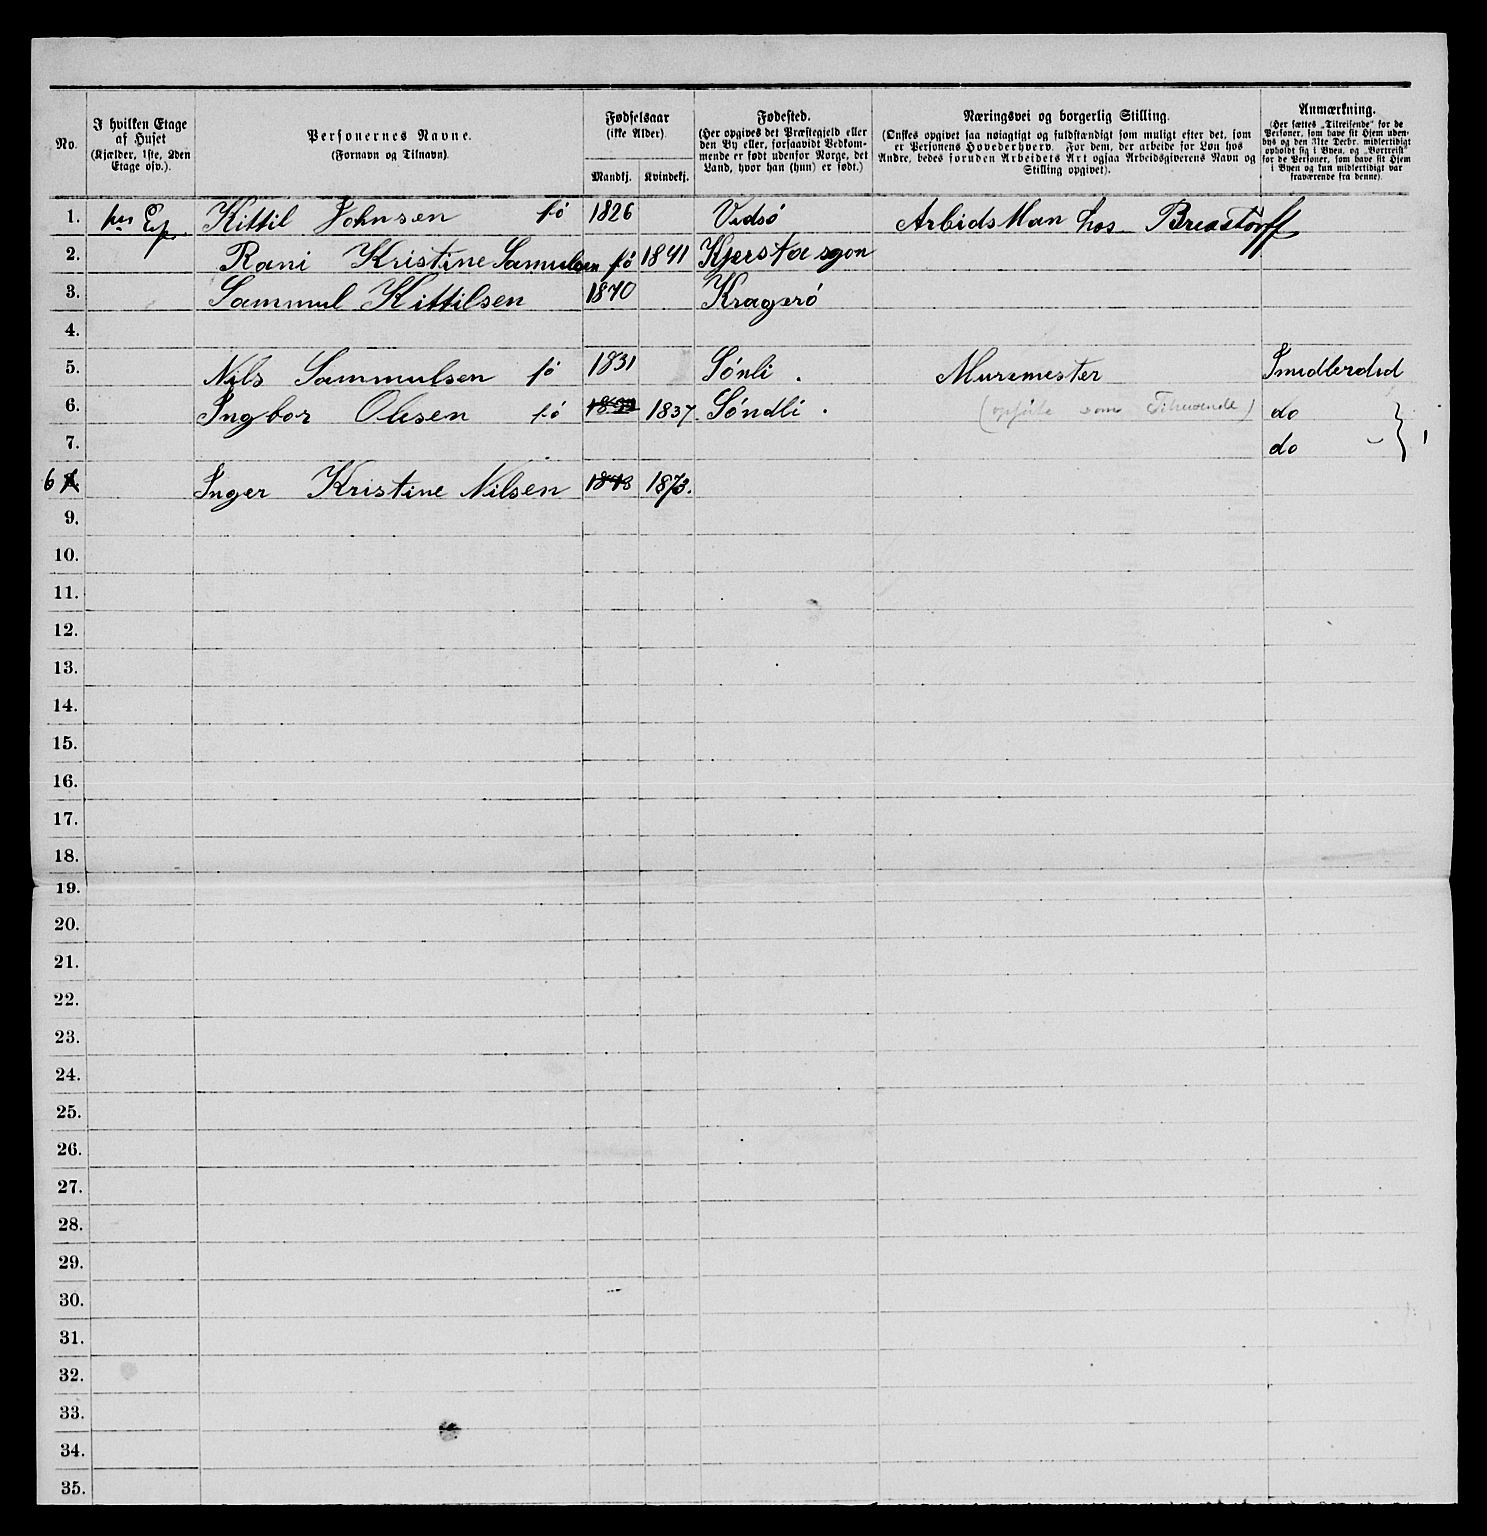 No.
I hvilken Etage af Huset (Kjælder, 1ste, 2den Etage osv.).
Personernes Navne. (Fornavn og Tilnavn).
Fødselsaar (ikke Alder). Mandkj. Kvindekj.
Fødested. (Her opgives det Præstegjeld eller den By eller, forsaavidt Vedkommende er født udenfor Norge, det Land, hvor han (hun) er født.)
Næringsvei og borgerlig Stilling. (Ønskes opgivet saa nøiagtigt og fuldstændigt som muligt efter det, som er Personens Hovederhverv. For dem, der arbeide for Løn hos Andre, bedes foruden Arbeidets Art ogsaa Arbeidsgiverens Navn og Stilling opgivet).
Anmærkning. (Her sættes „Tilreisende" for de Personer, som have sit Hjem udenbys og den 31te Decbr. midlertidigt opholdt sig i Byen, og „Bortreist" for de Personer, som have sit Hjem i Byen og kun midlertidigt var fraværende fra denne).
1. Kittil Johnsen fö 1826 Vidsö ArbidsMan hos
2. Rani Kristine Samulsen fö 1841
3. Sammul Kittilsen 1870 Kragerö
4.
5. Nils Sammulsen fö 1831 Sönli. Murmester
6. Ingbor Olesen fö 1837. Söndli. do
7. do
6 Inger Kristine Nilsen 1873 1873.
9.
10.
11.
12.
13.
14.
15.
16.
17.
18.
19.
20.
21.
22.
23.
24.
25.
26.
27.
28.
29.
30.
31.
32.
33.
34.
35.